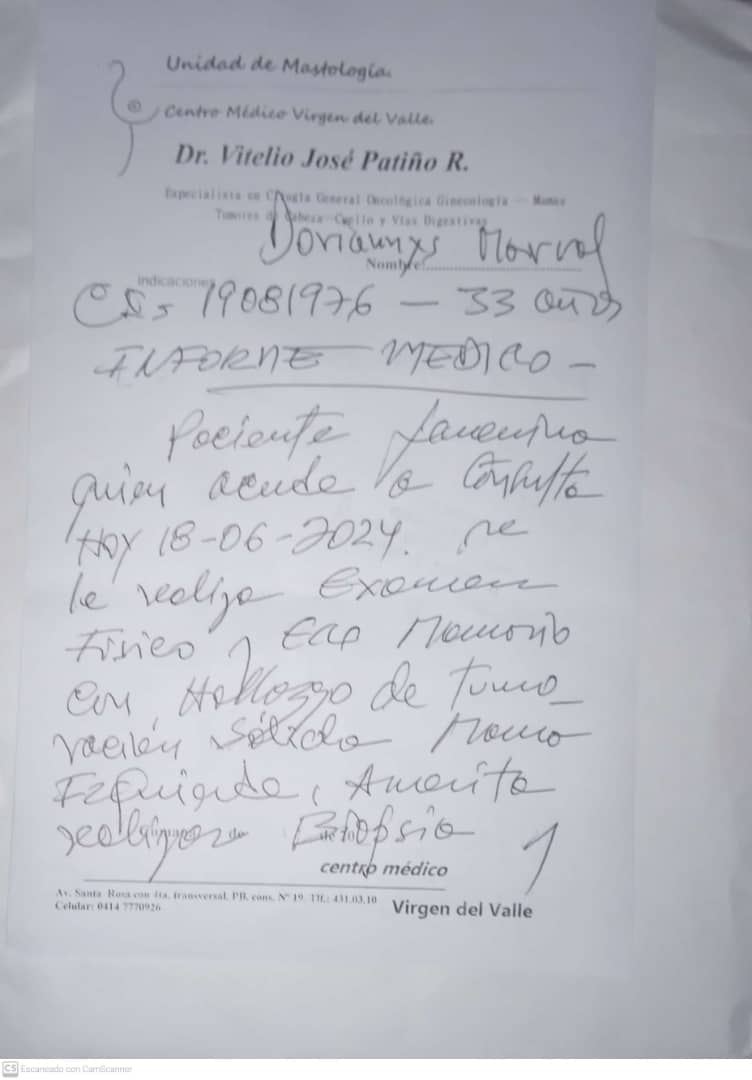 Unidad de Mastología.
Centro Médico Virgen del Valle.
Dr. Vitelio José Patiño R.
Especialista en Cirugía General Oncológica Ginecología - Mamas
Tumores de Cabeza-Cuello y Vías Digestivas
Doriannys Marval
Nombre:
Indicaciones
19081976 - 33 años
INFORME MEDICO -
Paciente femenino
quien acude a Consulta
Hoy 18-06-2024. se
le realiza Examen
Fisico y Eco Mamario
con Hallazgo de Tumo_
ración Sólida Mama
Izquierda, Amerita
realizar Biopsia
1
centro médico
Av. Santa Rosa con 4ta. transversal, PB, cons. N° 19. Tlf.: 431.03.10
Celular: 0414 7770926
Virgen del Valle
CS Escaneado con CamScanner